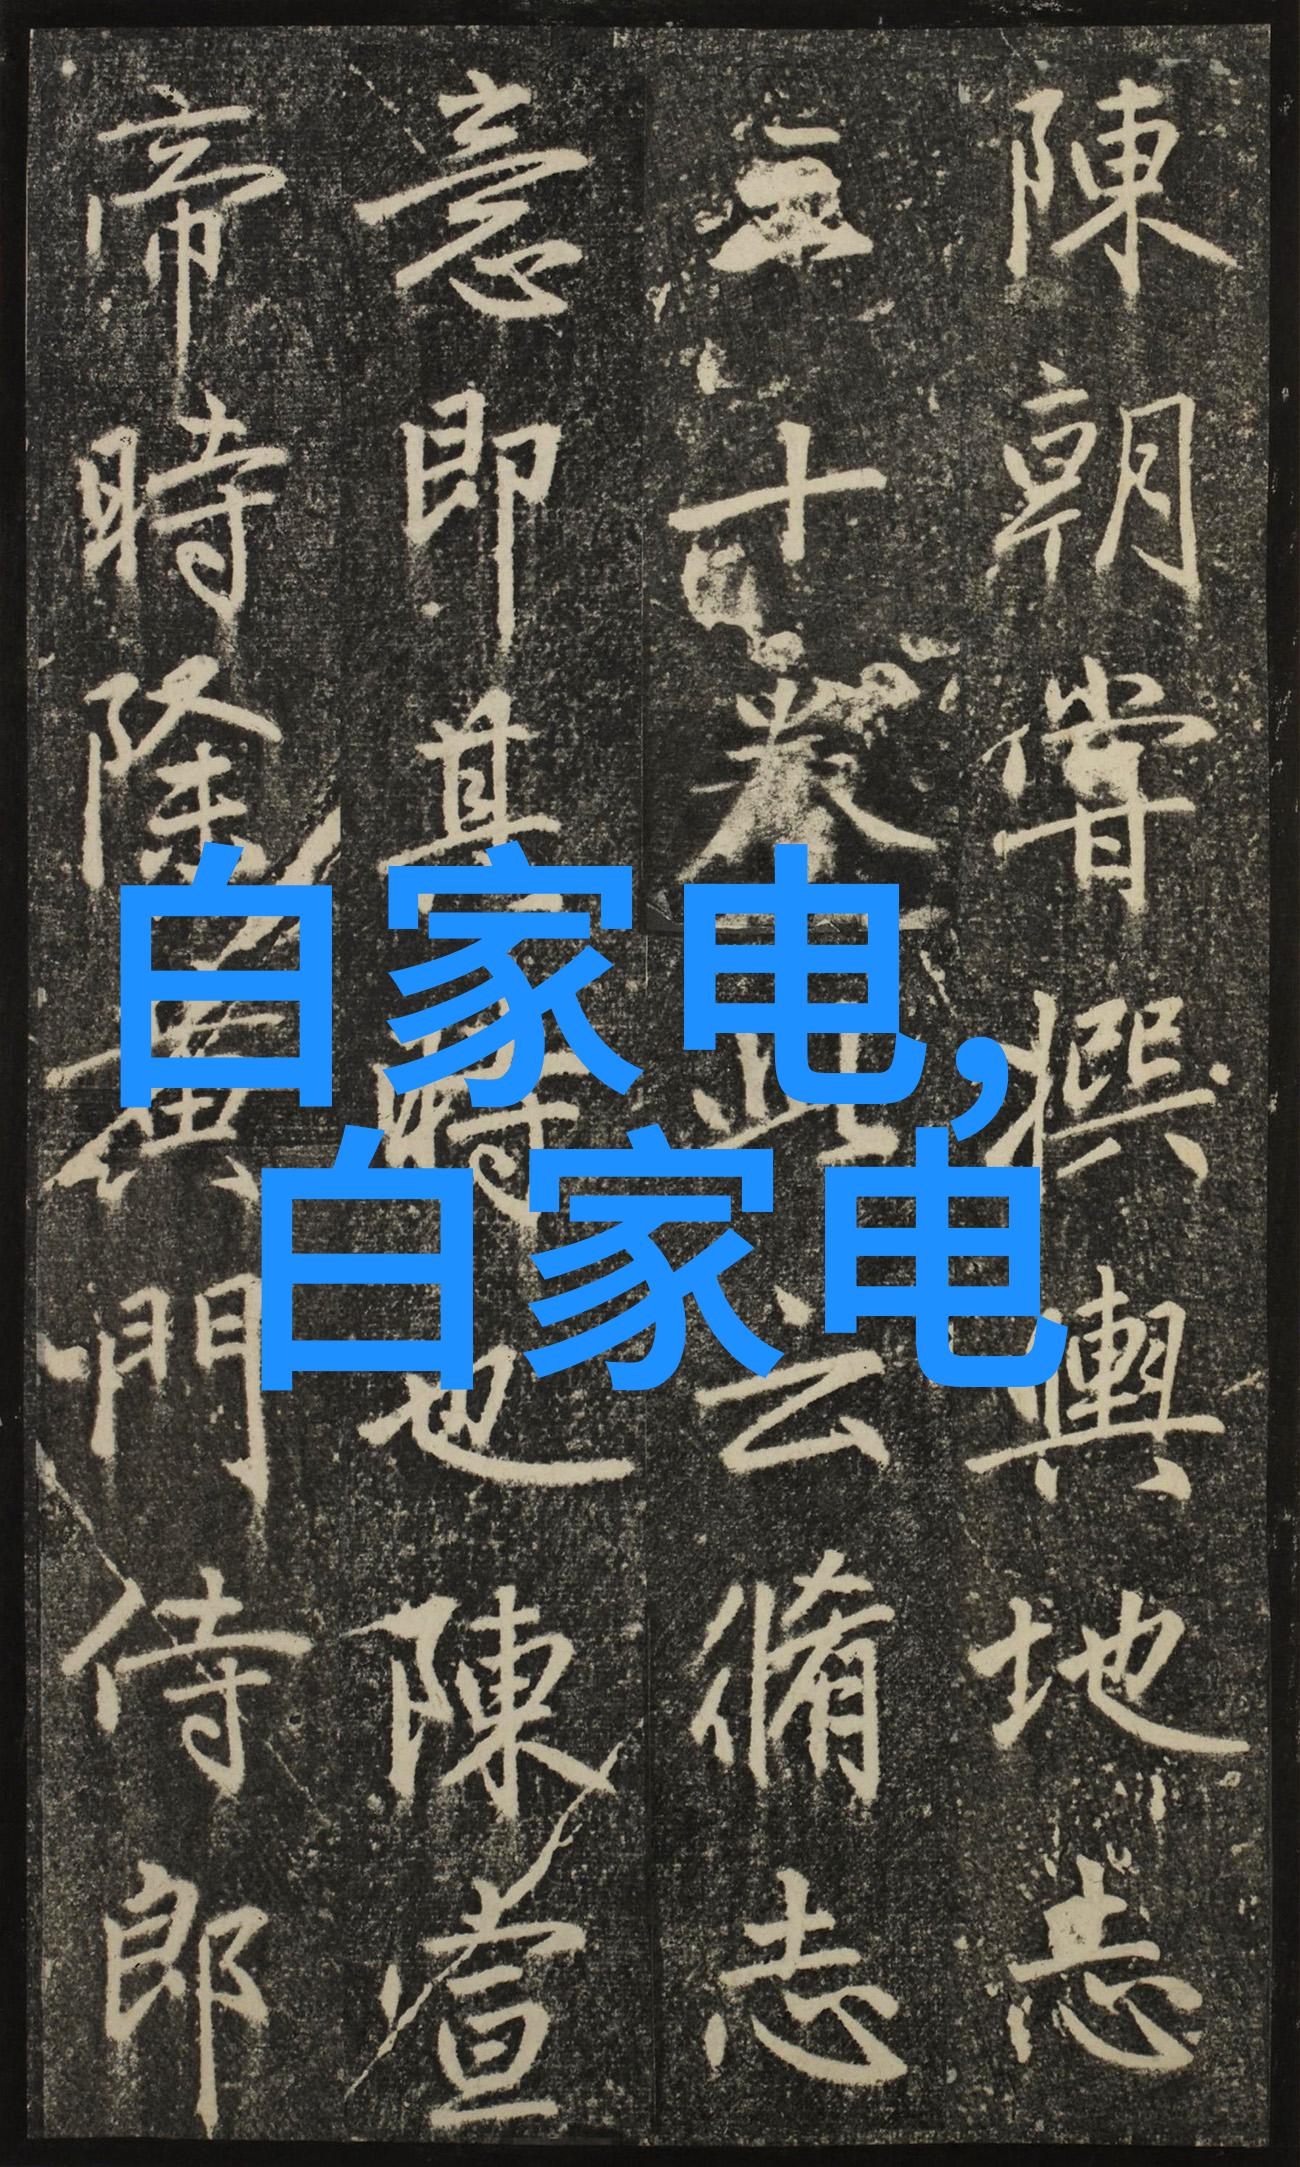 陳朝嘗撰輿地志
三十卷此云脩志
意即其時也陳宣
帝時除黃門侍郎
白家电,
白家电